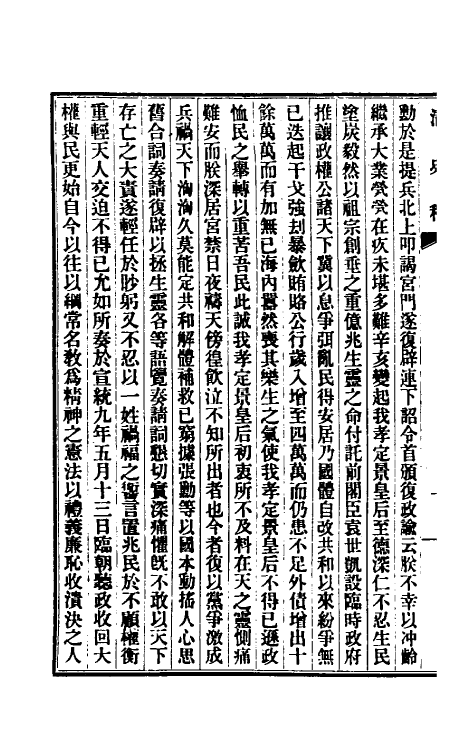 清史稿
勳於是提兵北上叩謁宮門遂復辟連下詔令首頒復政諭云朕不幸以沖齡
繼承大業煢煢在疚未堪多難辛亥變起我孝定景皇后至德深仁不忍生民
塗炭毅然以祖宗創垂之重億兆生靈之命付託前閣臣袁世凱設臨時政府
推讓政權公諸天下冀以息爭弭亂民得安居乃國體自改共和以來紛爭無
已迭起干戈強刦暴斂賄賂公行歲入增至四萬萬而仍患不足外債增出十
餘萬萬而有加無已海內囂然喪其樂生之氣使我孝定景皇后不得已遜政
恤民之舉轉以重苦吾民此誠我孝定景皇后初衷所不及料在天之靈惻痛
難安而朕深居宮禁日夜禱天徬徨飲泣不知所出者也今者復以黨爭激成
兵禍天下洶洶久莫能定共和解體補救已窮據張勳等以國本動搖人心思
舊合詞奏請復辟以拯生靈各等語覽奏請詞懇切實深痛懼旣不敢以天下
存亡之大責遂輕任於眇躬又不忍以一姓禍福之讏言置兆民於不顧權衡
重輕天人交迫不得已允如所奏於宣統九年五月十三日臨朝聽政收回大
權與民更始自今以往以綱常名敎爲精神之憲法以禮義廉恥收潰決之人